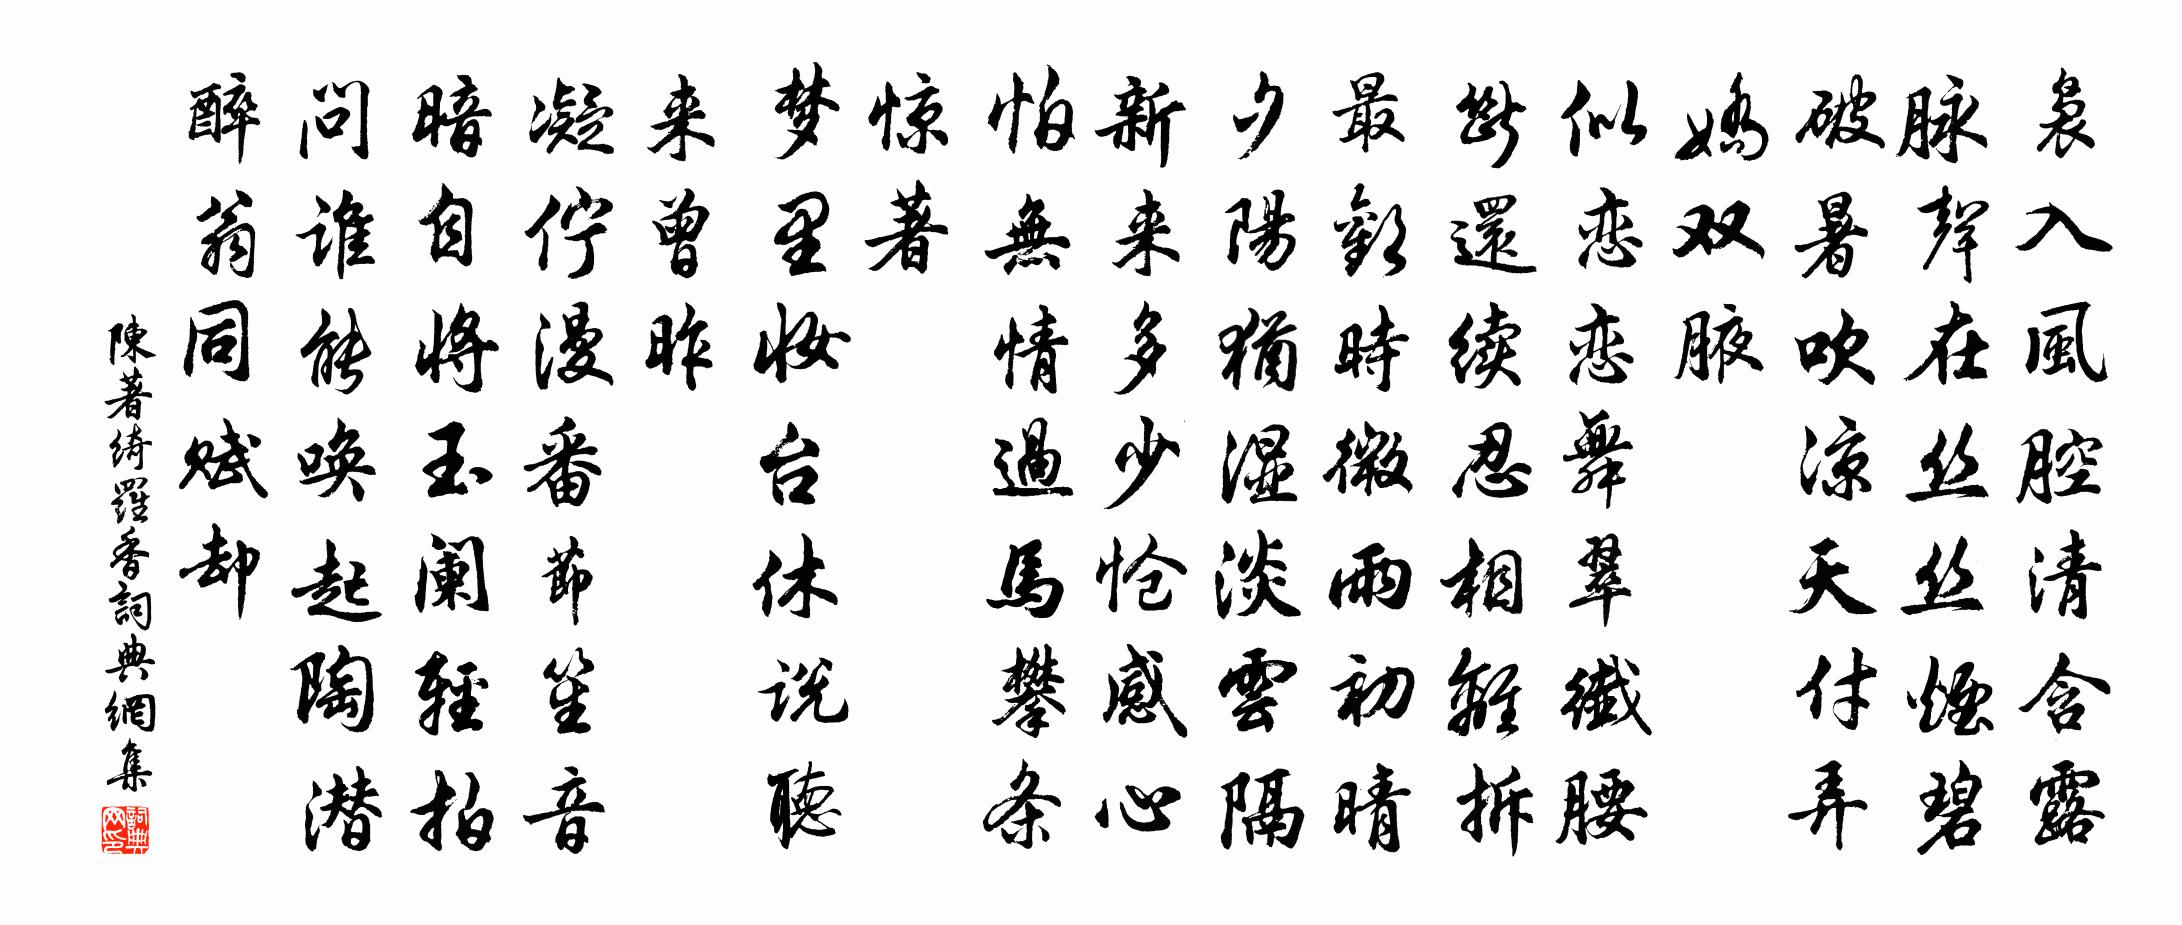 裊入風腔清含露
脉聲在丝丝煙碧
破暑吹凉天付弄
嬌双腋
似恋恋舞翠纖腰
斷還续忍相離拆
最歡時微雨初晴
夕陽猶湿淡雲隔
新来多少怆感心
怕無情過馬攀条
惊著
梦里妆台休说聽
来曾昨
凝佇漫番節笙音
暗自將玉阑輕拍
问谁能唤起陶潜
醉翁同赋却
陳著綺羅香詞典網集
詞典网印